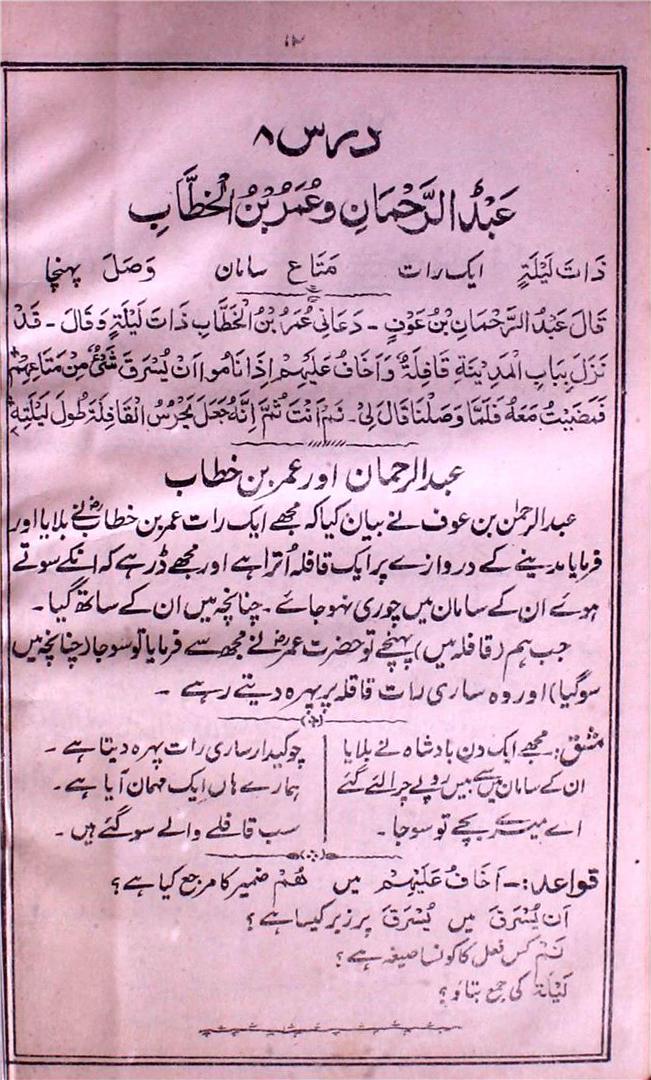 ۱۲
درس ۸
عَبْدُ الرَّحْمَانِ وَعُمَرُ بْنُ الْخَطَّابِ
ذَاتَ لَيْلَةٍ ایک رات مَتَاع سامان وَصَلَ پہنچا
قَالَ عَبْدُ الرَّحْمَانِ بْنُ عَوْفٍ ۔ دَعَانِي عُمَرُ بْنُ الْخَطَّابِ ذَاتَ لَيْلَةٍ وَقَالَ ۔ قَدْ
نَزَلَ بِبَابِ الْمَدِيْنَةِ قَافِلَةٌ وَاَخَافُ عَلَيْهِمْ اِذَا نَامُوا اَنْ يُسْرَقَ شَيْءٌ مِنْ مَتَاعِهِمْ
فَمَضَيْتُ مَعَهُ فَلَمَّا وَصَلْنَا قَالَ لِيْ ۔ نَمْ اَنْتَ ثُمَّ اِنَّهُ جَعَلَ يَحْرُسُ الْقَافِلَةَ طُولَ لَيْلَتِهِ
عبد الرحمان اور عمر بن خطاب
عبد الرحمٰن بن عوف نے بیان کیا کہ مجھے ایک رات عمر بن خطابؓ نے بلایا اور
فرمایا مدینے کے دروازے پر ایک قافلہ اُترا ہے اور مجھے ڈر ہے کہ انکے سوتے
ہوئے ان کے سامان میں چوری نہو جائے ۔ چنانچہ میں ان کے ساتھ گیا ۔
جب ہم (قافلہ میں) پہنچے تو حضرت عمرؓ نے مجھ سے فرمایا تو سو جا (چنانچہ میں
سو گیا) اور وہ ساری رات قافلہ پر پہرہ دیتے رہے ۔
مشق :۔ مجھے ایک دن بادشاہ نے بلایا
ان کے سامان میں سے بیس روپے چرا لئے گئے
اے میرے بچے تو سو جا ۔
چوکیدار ساری رات پہرہ دیتا ہے ۔
ہمارے ہاں ایک مہمان آیا ہے ۔
سب قافلے والے سو گئے ہیں ۔
قواعد :۔ اَخَافُ عَلَيْهِمْ میں هُمْ ضمیر کا مرجع کیا ہے ؟
اَنْ يُسْرَقَ میں يُسْرَقَ پر زبر کیسا ہے ؟
نَمْ کس فعل کا کونسا صیغہ ہے ؟
لَيْلَة کی جمع بتاؤ ؟